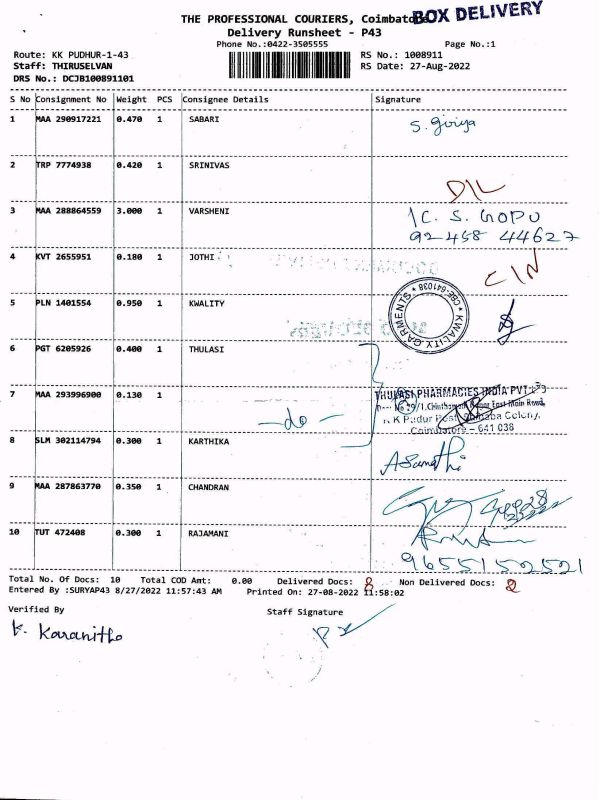 THE PROFESSIONAL COURIERS, Coimbatore
BOX DELIVERY
Delivery Runsheet - P43
Phone No.:0422-3505555
Page No.:1
Route: KK PUDHUR-1-43
RS No.: 1008911
Staff: THIRUSELVAN
RS Date: 27-Aug-2022
DRS No.: DCJB100891101
S No Consignment No Weight PCS Consignee Details Signature
1 MAA 290917221 0.470 1 SABARI
2 TRP 7774938 0.420 1 SRINIVAS
D/L
3 MAA 288864559 3.000 1 VARSHENI
C. S. GOPU
92458 44627
4 KVT 2655951 0.180 1 JOTHI
C/N
5 PLN 1401554 0.950 1 KWALITY
KWALITY GARMENTS * CBE-641038 *
6 PGT 6205926 0.400 1 THULASI
7 MAA 293996900 0.130 1
— do —
THULASI PHARMACIES INDIA PVT
East Main Road,
Colony,
Coimbatore - 641 038
8 SLM 302114794 0.300 1 KARTHIKA
9 MAA 287863770 0.350 1 CHANDRAN
10 TUT 472408 0.300 1 RAJAMANI
9655152521
Total No. Of Docs: 10 Total COD Amt: 0.00 Delivered Docs: 8 Non Delivered Docs: 2
Entered By :SURYAP43 8/27/2022 11:57:43 AM Printed On: 27-08-2022 11:58:02
Verified By
Staff Signature